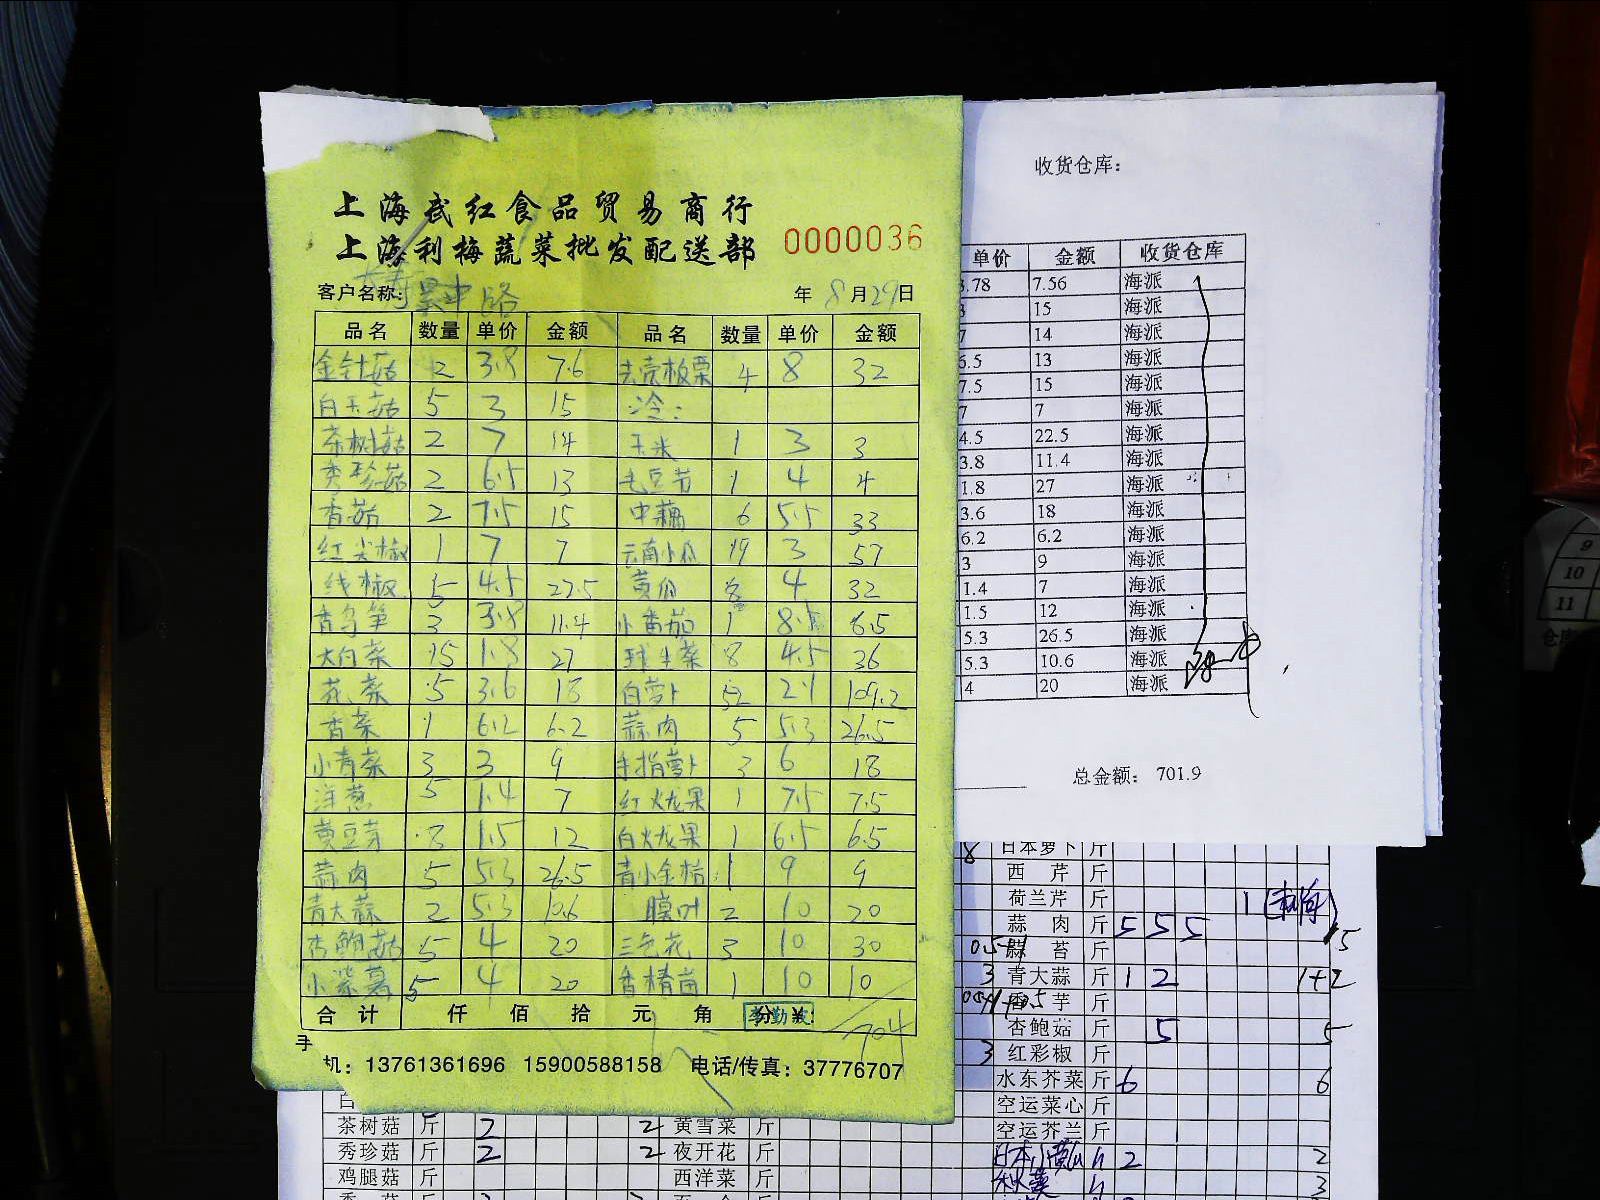 上海武红食品贸易商行
上海利梅蔬菜批发配送部 0000036
客户名称: 吴中路 年 8月29日
品名 数量 单价 金额 品名 数量 单价 金额
金针菇 2 3.8 7.6 去壳板栗 4 8 32
白玉菇 5 3 15 冷:
茶树菇 2 7 14 玉米 1 3 3
秀珍菇 2 6.5 13 毛豆节 1 4 4
香菇 2 7.5 15 中藕 6 5.5 33
红尖椒 1 7 7 云南小瓜 19 3 57
线椒 5 4.5 22.5 黄瓜 8 4 32
香乌笋 3 3.8 11.4 小番茄 1 6.5
大白菜 15 1.8 27 球生菜 8 4.5 36
花菜 5 3.6 18 白萝卜 52 2.1 109.2
香菜 1 6.2 6.2 蒜肉 5 5.3 26.5
小青菜 3 3 9 手指萝卜 3 6 18
洋葱 5 1.4 7 红火龙果 1 7.5 7.5
黄豆芽 8 1.5 12 白火龙果 1 6.5 6.5
蒜肉 5 5.3 26.5 青小金桔 1 9 9
青大蒜 2 5.3 10.6 2 10 20
杏鲍菇 5 4 20 三色花 3 10 30
小紫薯 5 4 20 1 10 10
合计 仟 佰 拾 元 角 分 ¥: 704
手机: 13761361696 15900588158 电话/传真: 37776707
收货仓库:
单价 金额 收货仓库
3.78 7.56 海派
3 15 海派
7 14 海派
6.5 13 海派
7.5 15 海派
7 7 海派
4.5 22.5 海派
3.8 11.4 海派
1.8 27 海派
3.6 18 海派
6.2 6.2 海派
3 9 海派
1.4 7 海派
1.5 12 海派
5.3 26.5 海派
5.3 10.6 海派
4 20 海派
总金额: 701.9
8 日本萝卜 斤
西芹 斤
荷兰芹 斤 1
蒜肉 斤 5 5 5 15
0.5 蒜苔 斤
3 青大蒜 斤 1 2 1+2
香芋 斤
杏鲍菇 斤 5 5
3 红彩椒 斤
水东芥菜 斤 6 6
空运菜心 斤
空运芥兰 斤
日本小黄瓜 2 2
3
白
茶树菇 斤 2 2 黄雪菜 斤
秀珍菇 斤 2 2 夜开花 斤
鸡腿菇 斤 西洋菜 斤
9
10
11